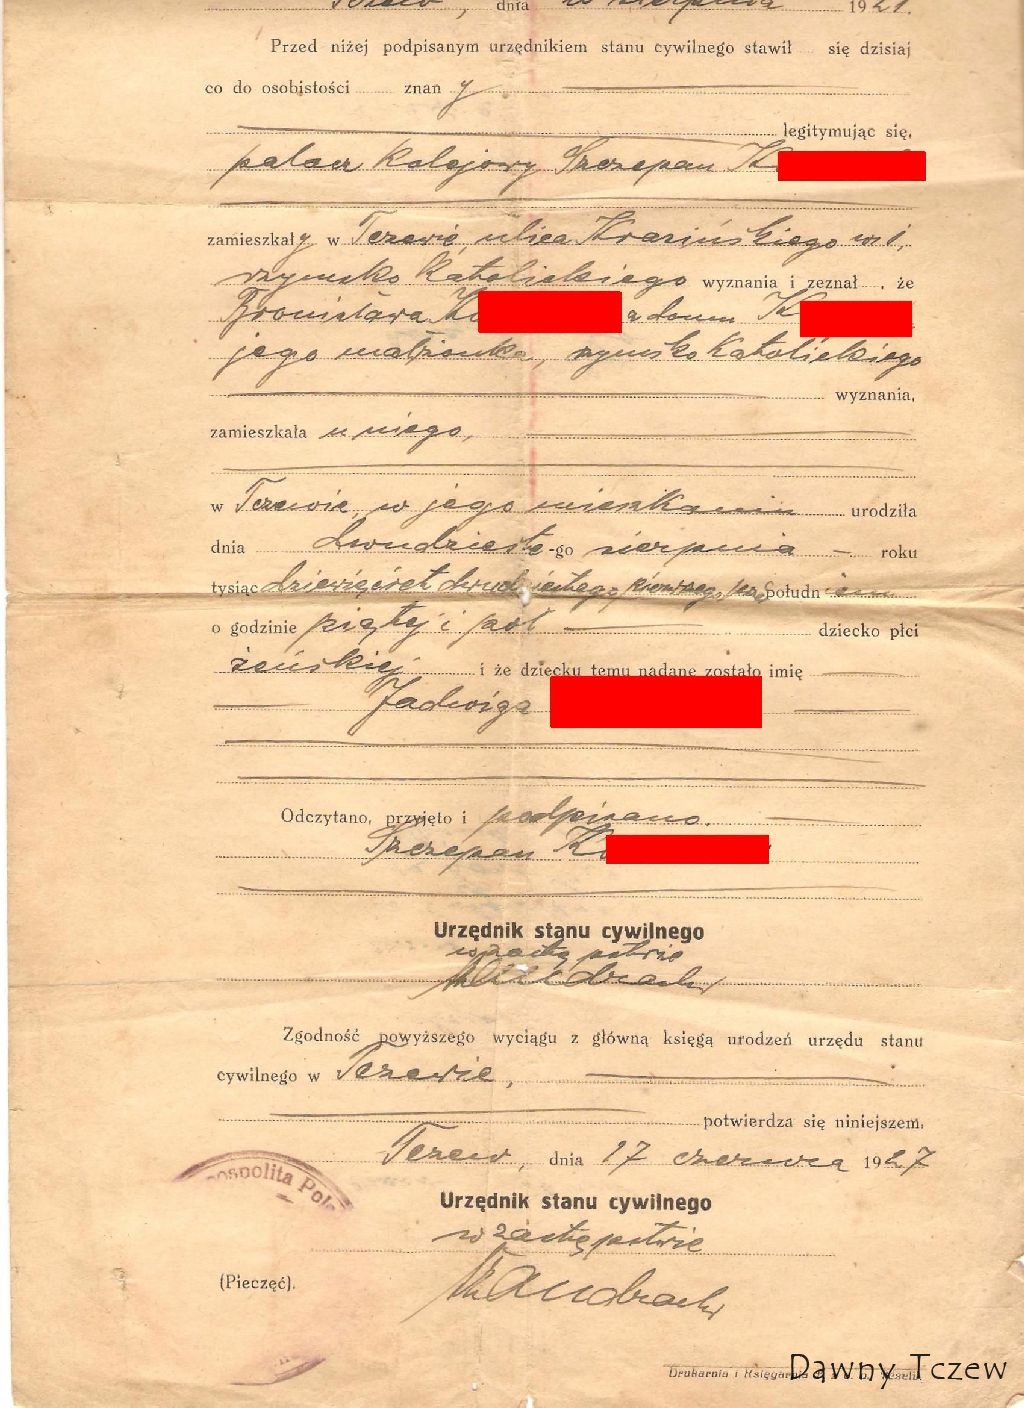 Tczew, dnia sierpnia 1921.
Przed niżej podpisanym urzędnikiem stanu cywilnego stawił się dzisiaj
co do osobistości znan y
legitymując się,
palacz kolejowy Szczepan K
zamieszkały w Tczewie, ulica Krasińskiego
rzymsko katolickiego wyznania i zeznał, że
Bronisława K a domu K
jego małżonka, rzymsko katolickiego
wyznania,
zamieszkała u niego,
w Tczewie, w jego mieszkaniu urodziła
dnia dwudziestego-go sierpnia roku
tysiąc dziewięćset dwudziestego pierwszego, przed południem
o godzinie piątej i pół dziecko płci
żeńskiej i że dziecku temu nadane zostało imię
Jadwiga
Odczytano, przyjęto i podpisano.
Szczepan K
Urzędnik stanu cywilnego
w zastępstwie
Zgodność powyższego wyciągu z główną księgą urodzeń urzędu stanu
cywilnego w Tczewie,
potwierdza się niniejszem.
Tczew, dnia 17 czerwca 1927
Urzędnik stanu cywilnego
w zastępstwie
(Pieczęć).
Drukarnia i Księgarnia
Dawny Tczew